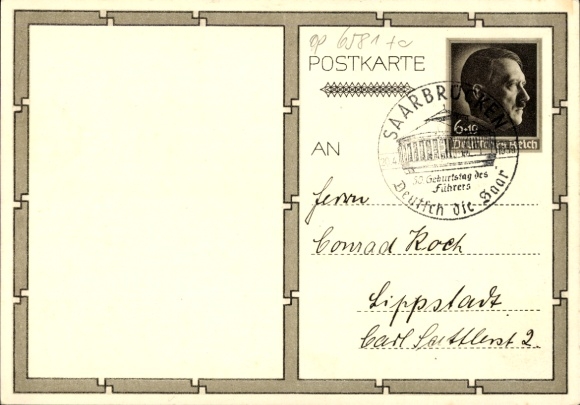 POSTKARTE
6+19
Deutsches Reich
SAARBRÜCKEN
50 Geburtstag des
Führers
Deutsch die Saar
AN
Herrn
Conrad Koch
Lippstadt
Carl Sattlerst 2.